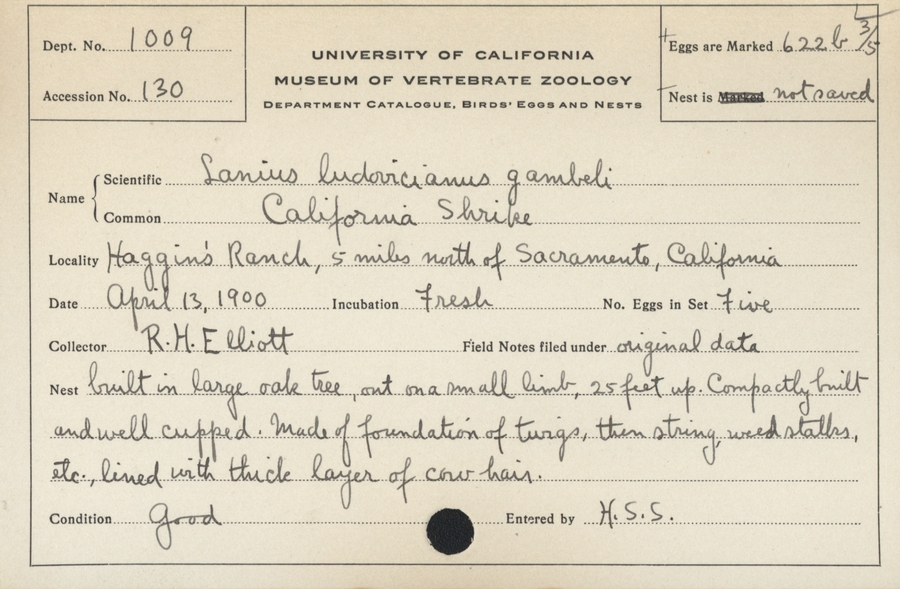 Dept. No. 1009
Accession No. 130
UNIVERSITY OF CALIFORNIA
MUSEUM OF VERTEBRATE ZOOLOGY
DEPARTMENT CATALOGUE, BIRDS' EGGS AND NESTS
Eggs are Marked 622b 3/5
Nest is Marked not saved
Name
Scientific Lanius ludovicianus gambeli
Common California Shrike
Locality Haggin's Ranch, 5 miles north of Sacramento, California
Date April 13, 1900 Incubation Fresh No. Eggs in Set Five
Collector R.H. Elliott Field Notes filed under original data
Nest built in large oak tree, out on a small limb, 25 feet up. Compactly built
and well cupped. Made of foundation of twigs, then string, weed stalks,
etc., lined with thick layer of cow hair.
Condition good Entered by H.S.S.